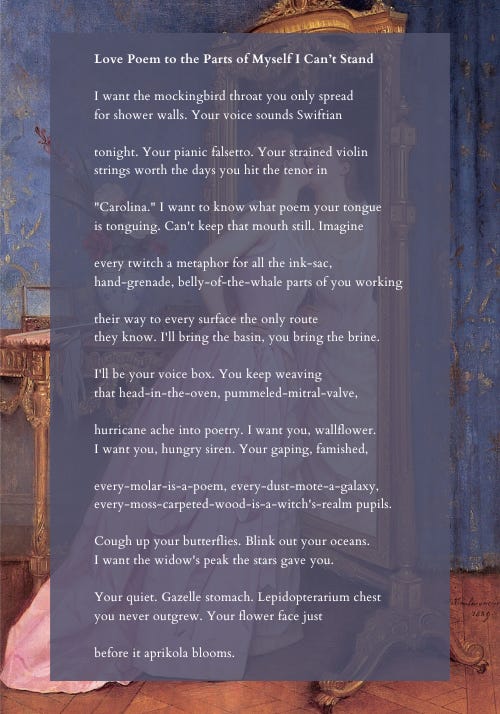 Love Poem to the Parts of Myself I Can't Stand
I want the mockingbird throat you only spread
for shower walls. Your voice sounds Swiftian
tonight. Your pianic falsetto. Your strained violin
strings worth the days you hit the tenor in
"Carolina." I want to know what poem your tongue
is tonguing. Can't keep that mouth still. Imagine
every twitch a metaphor for all the ink-sac,
hand-grenade, belly-of-the-whale parts of you working
their way to every surface the only route
they know. I'll bring the basin, you bring the brine.
I'll be your voice box. You keep weaving
that head-in-the-oven, pummeled-mitral-valve,
hurricane ache into poetry. I want you, wallflower.
I want you, hungry siren. Your gaping, famished,
every-molar-is-a-poem, every-dust-mote-a-galaxy,
every-moss-carpeted-wood-is-a-witch's-realm pupils.
Cough up your butterflies. Blink out your oceans.
I want the widow's peak the stars gave you.
Your quiet. Gazelle stomach. Lepidopterarium chest
you never outgrew. Your flower face just
before it aprikola blooms.